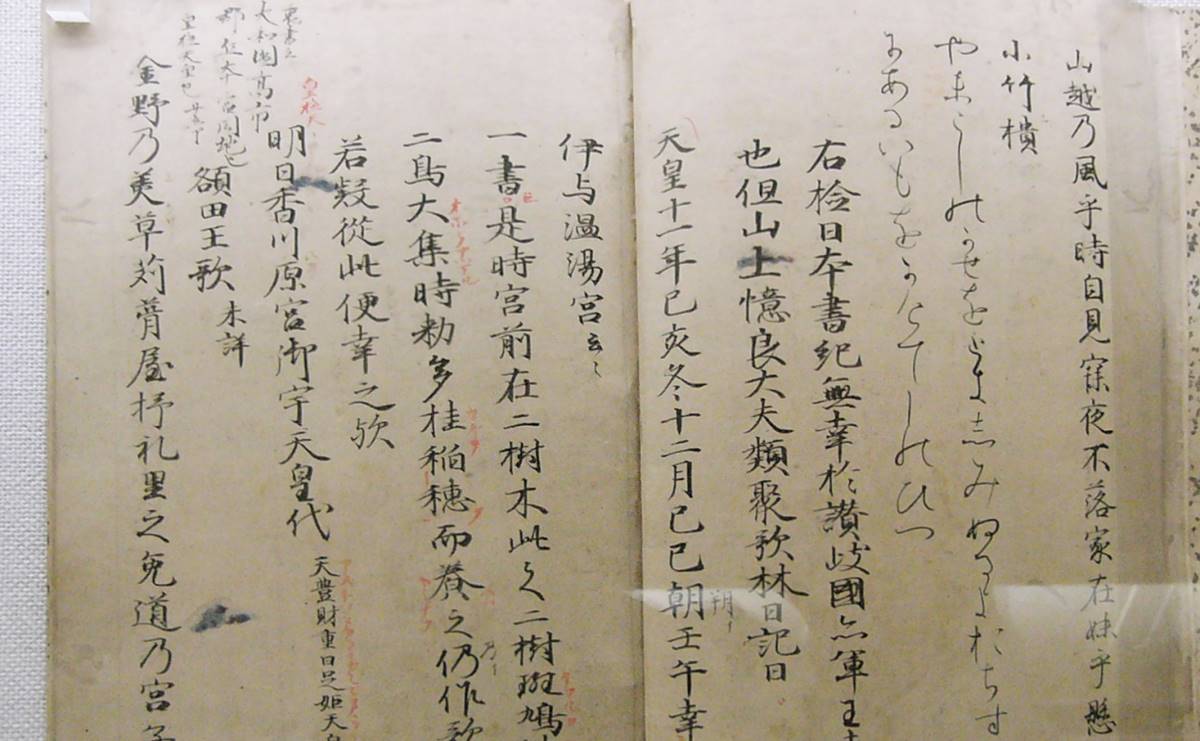 山越乃風乎時自見寐夜不落家在妹乎懸
小竹樻
やまこしのかせをときしみぬるよおちす
にあるいもをかけてしのひつ
右檢日本書紀無幸於讃岐國亦軍王
也但山上憶良大夫類聚歌林曰記曰
天皇十一年己亥冬十二月己巳朝壬午幸
朔イ
伊与温湯宮云々
一書是時宮前在二樹木此之二樹斑鳩
二鳥大集時勅多桂稲穂而養之仍作歌
若疑從此便幸之歟
皇極天
明日香川原宮御宇天皇代 天豊財重日足姫天皇
裏書云
大和國高市
皇極天皇也
額田王歌 未詳
金野乃美草苅葺屋杼礼里之兔道乃宮子